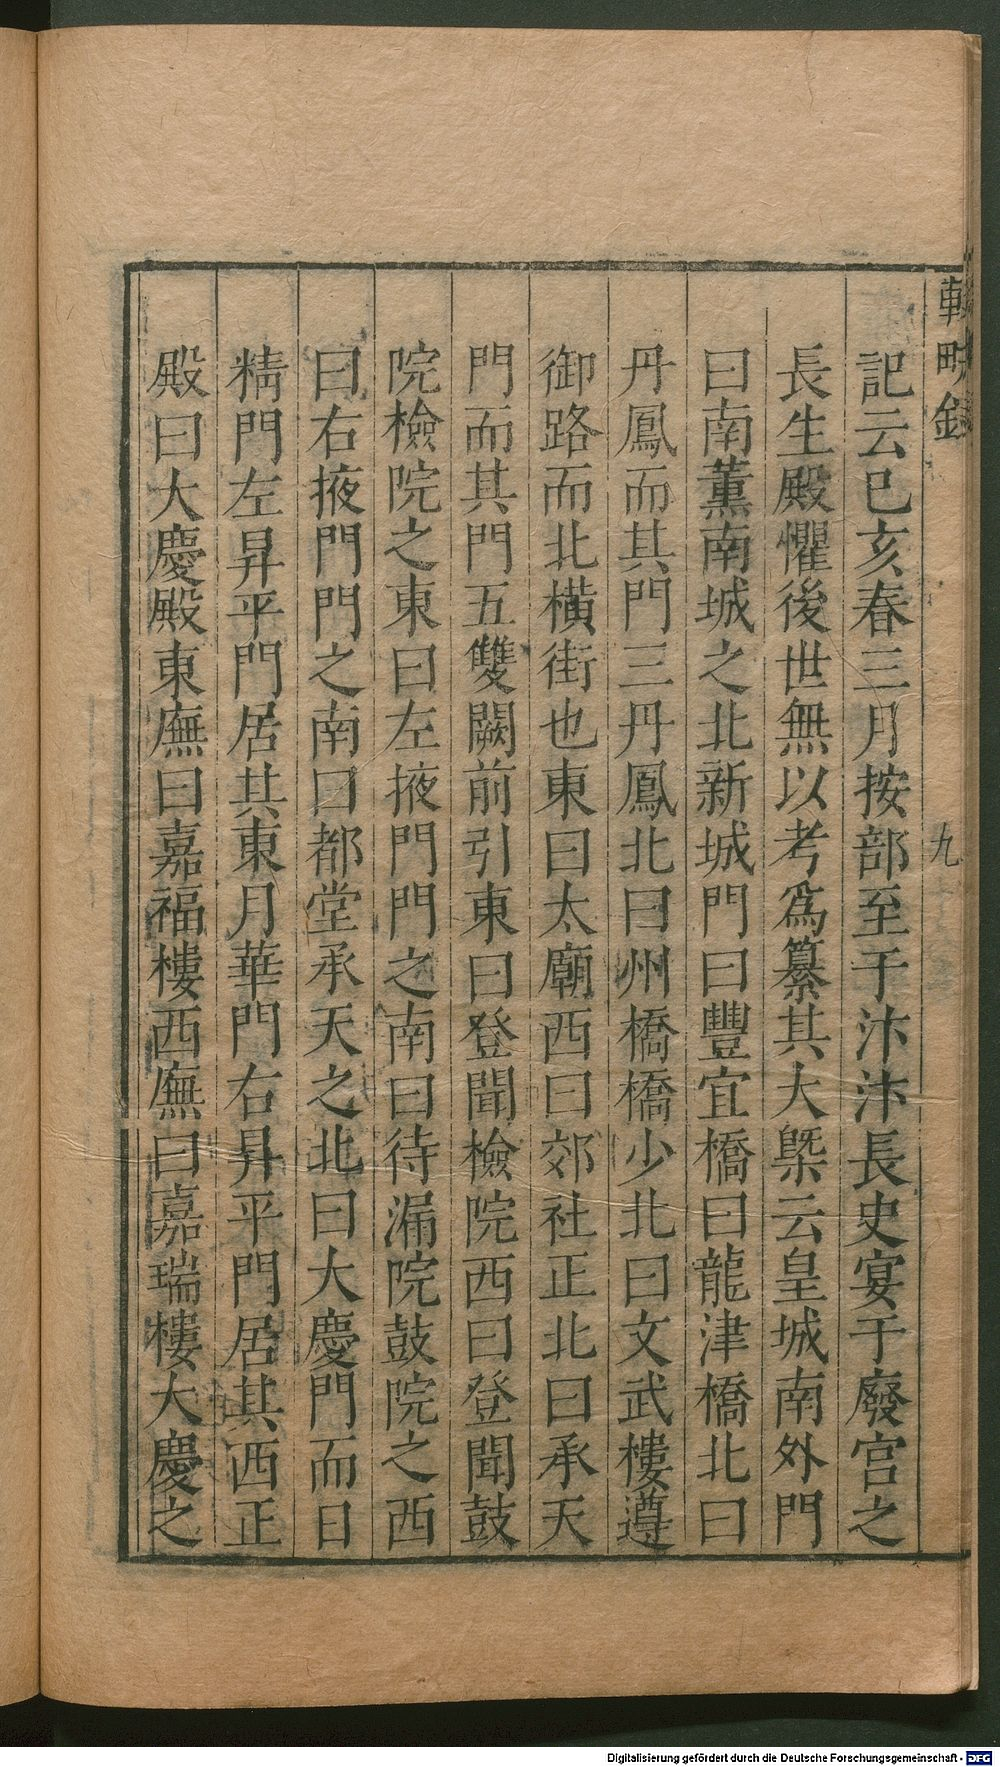 輟畊錄
九
記云己亥春三月按部至于汴汴長史宴于廢宮之
長生殿懼後世無以考爲纂其大槩云皇城南外門
曰南薰南城之北新城門曰豐宜橋曰龍津橋北曰
丹鳳而其門三丹鳳北曰州橋橋少北曰文武樓遵
御路而北橫街也東曰太廟西曰郊社正北曰承天
門而其門五雙闕前引東曰登聞檢院西曰登聞鼓
院檢院之東曰左掖門門之南曰待漏院鼓院之西
曰右掖門門之南曰都堂承天之北曰大慶門而日
精門左昇平門居其東月華門右昇平門居其西正
殿曰大慶殿東廡曰嘉福樓西廡曰嘉瑞樓大慶之
Digitalisierung gefördert durch die Deutsche Forschungsgemeinschaft - DFG